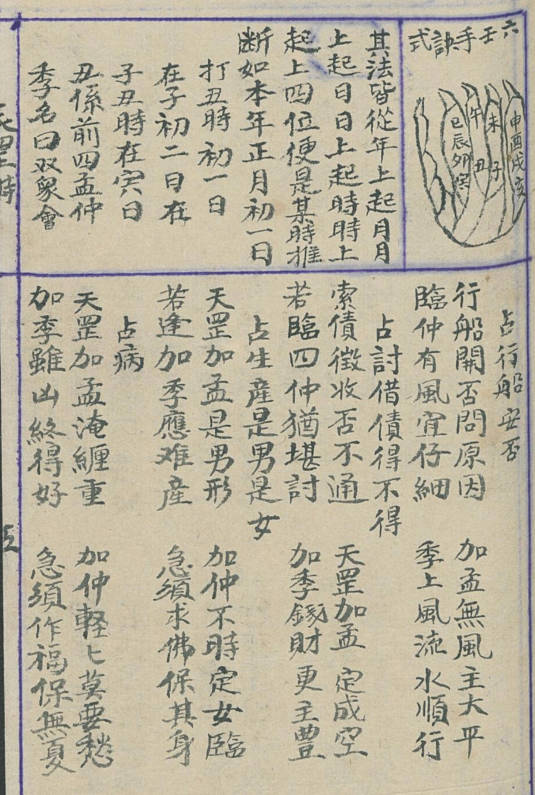 六壬手訣式
申酉戌亥
未子
午丑
巳辰卯寅
其法皆從年上起月月
上起日日上起時時上
起上四位便是某時推
断如本年正月初一日
打丑時初一日
在子初二日在
子丑時在寅日
丑係前四孟仲
季名曰双象會
占行船安否
行船開否問原因 加孟無風主大平
臨仲有風宜仔細 季上風流水順行
占討借債得不得
索債徵收否不通 天罡加孟定成空
若臨四仲猶堪討 加季錢財更主豊
占生産是男是女
天罡加孟是男形 加仲不時定女臨
若逢加季應难産 急須求佛保其身
占病
天罡加孟淹纏重 加仲軽匕莫要愁
加季雖凶終得好 急須作福保無憂